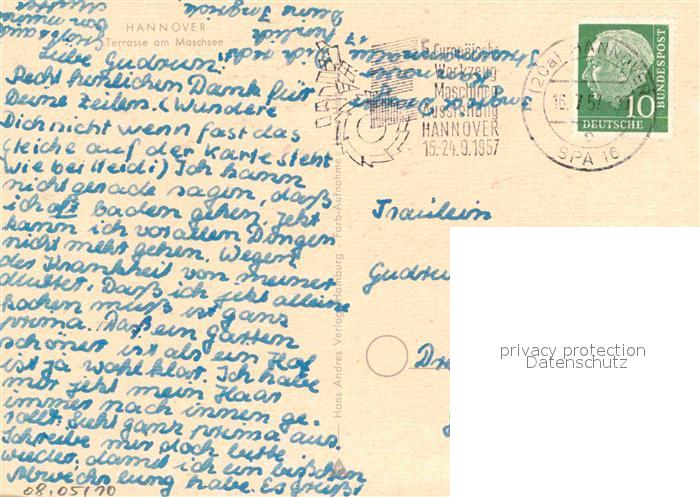 HANNOVER
Terrasse am Maschsee
Liebe Gudrun!
Recht herzlichen Dank für
Deine Zeilen. (Wundere
Dich nicht wenn fast das
gleiche auf der Karte steht
wie bei Heidi) Ich kann
nicht gerade sagen, daß
ich oft baden gehen. Jetzt
kann ich vor allen Dingen
nicht mehr gehen. Wegen
der Krankheit von meiner
Mutter. Daß ich jetzt alleine
kochen muß ist ganz
prima. Daß ein Garten
schöner ist als ein Hof
ist ja wohl klar. Ich habe
mir jetzt mein Haar
immer nach innen ge-
rollt. Sieht ganz prima aus.
Schreibe mir doch bitte
wieder, damit ich ein bißchen
Abwechslung habe. Es grüßt
08.05/10
Hans Andres Verlag, Hamburg - Farb-Aufnahme
5. Europäische
Werkzeug
Maschinen
Ausstellung
HANNOVER
15.-24.9.1957
(20a) HANNOVER
16.7.57
SPA 16
10
DEUTSCHE
BUNDESPOST
Fräulein
Gudrun
Dre
privacy protection
Datenschutz